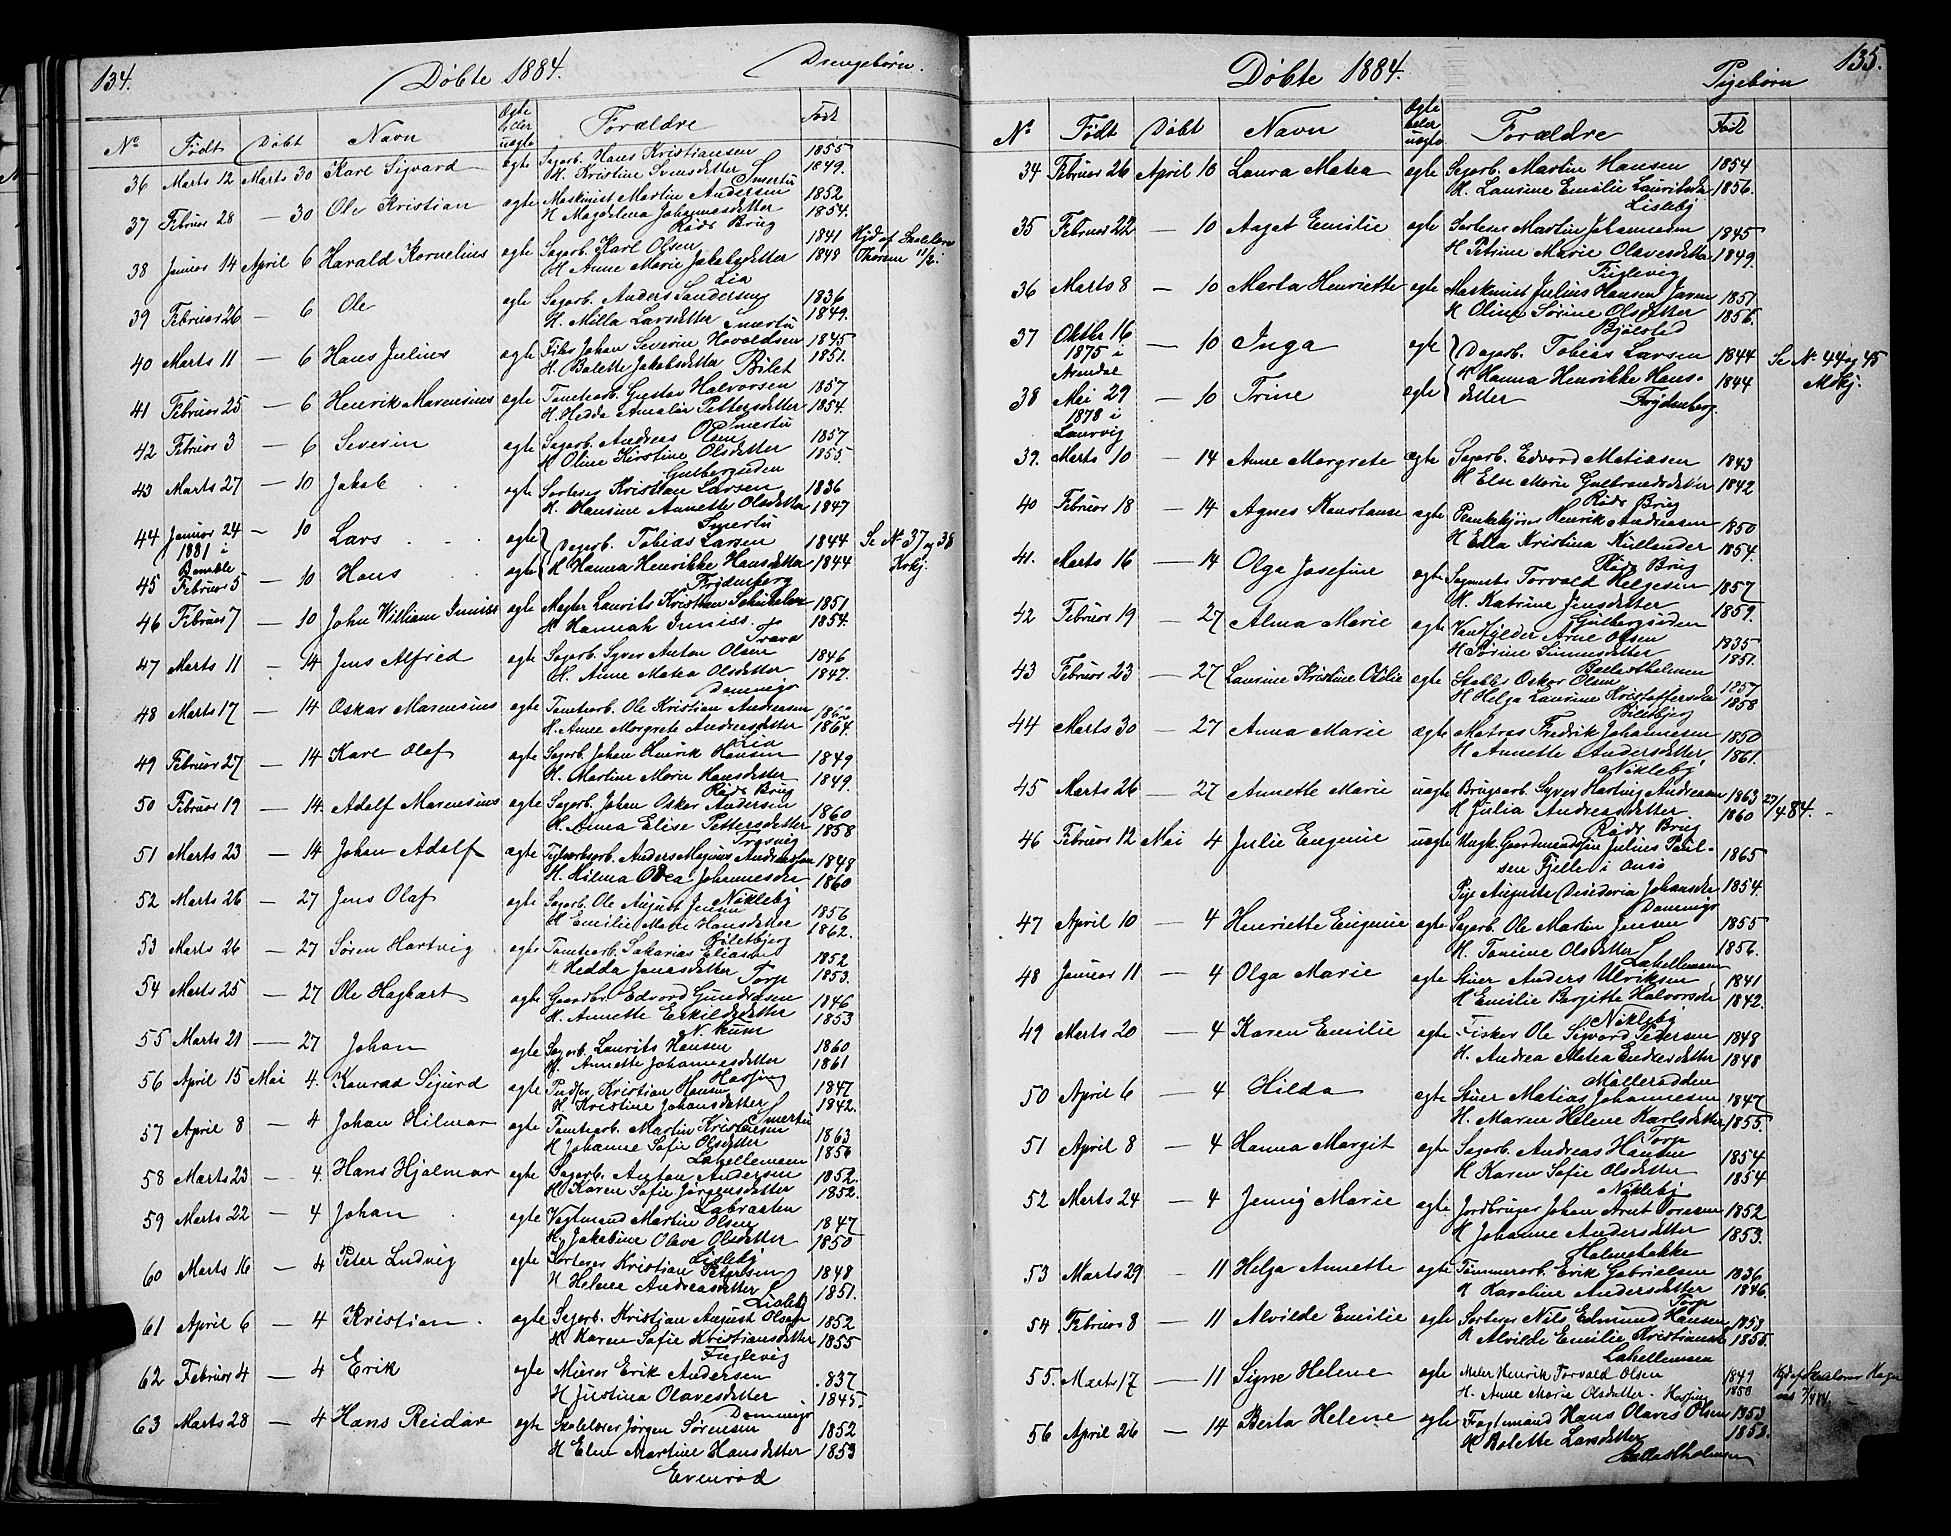 134.
Døbte 1884.
Drengebørn.
No Født Døbt Navn Ægte eller uægte Forældre Født
36 Marts 12 Marts 30 Karl Sigvard ægte Sagarb. Hans Kristiansen 1855
H. Kristine Svensdetter 1849.
Smertu
37 Februar 28 — 30 Ole Kristian ægte Maskinist Martin Andersen 1852
H Magdelena Johannesdetter 1854.
Røds Brug
38 Januar 14 April 6 Harald Kornelius ægte Sagarb. Karl Olsen 1841 Hjd af Skolelærer
H Anne Marie Jakobsdetter 1848 Thorsen
Lia
39 Februar 26 — 6 Ole ægte Sagarb. Anders Sandersen 1836
H. Milla Larsdetter 1849.
Smertu
40 Marts 11 — 6 Hans Julius ægte Fisk Johan Severin Hovoldsen 1845
H. Bolette Jakobsdetter 1851.
Bilet
41 Februar 25 — 6 Henrik Marensius ægte Tomtearb. Gustav Halvorsen 1857
H. Hedda Amalia Pettersdetter 1854.
Smertu
42 Februar 3 — 6 Severin ægte Sagarb. Andreas Olsen 1857
H Oline Kirstine Olsdetter 1855
Gulbergsiden
43 Marts 27 — 10 Jakob ægte Sorterer Kristian Larsen 1836
H. Hansine Annette Olsdetter 1847
Smertu
44 Januar 24 — 10 Lars ægte Dagarb. Tobias Larsen 1844 Se No 37 og 38
1881 i Bamble
45 Februar 5 — 10 Hans ægte H Hanna Henrikke Hansdetter 1844 Kvkj.
Frydenberg
46 Februar 7 — 10 John William Inniss ægte Mægler Laurits Kristian Schikelen 1851
H Hannah Inniss. 1854.
Trara
47 Marts 11 — 14 Jens Alfred ægte Sagarb. Syver Anton Olsen 1846
H. Anne Matea Olsdetter 1847.
Dammyr
48 Marts 17 — 14 Oskar Marensius ægte Tomtearb. Ole Kristian Andersen
H. Anne Margrete Andreasdetter 1864.
Lia
49 Februar 27 — 14 Karl Olaf ægte Sagarb. Johan Henrik Hansen 1849
H. Martine Marie Hansdetter 1849.
Røds Brug
50 Februar 19 — 14 Adolf Marensius ægte Sagarb. Johan Oskar Andersen 1860
H. Anna Elise Pettersdetter 1858
Trosvig
51 Marts 23 — 14 Johan Adolf ægte Teglverksarb. Anders Magnus Andreassen 1848
H. Hilma Odea Johannesdtr 1860
Niklebÿ
52 Marts 26 — 27 Jens Olaf ægte Sagarb. Ole August Jensen 1856
H Emilie Marie Hansdetter 1862.
Biletbjerg
53 Marts 26 — 27 Søren Hartvig ægte Tomtearb. Sakarias Eliasen 1852
H Hedda Jonasdetter 1853.
Torp
54 Marts 25 — 27 Ole Hagbart ægte Gaardbr. Edvard Gundersen 1846
H. Annette Eskildsdetter 1853
N. Kum
55 Marts 21 — 27 Johan ægte Sagarb. Laurits Hansen 1860
H. Annette Johannesdetter 1861
Hassing
56 April 15 Mai 4. Konrad Sigurd ægte Kristian Hansen 1847
H. Kristine Johansdetter 1842.
Smertu
57 April 8 — 4 Johan Hilmar ægte Tomtearb. Martin Kristensen 1863
H Johanne Sofie Olsdetter 1856
Lahellemoen
58 Marts 23 — 4. Hans Hjalmar ægte Sagarb. Anton Andersen 1852.
H. Karen Sofie Jørgensdetter 1852.
Labraaten
59 Marts 22 — 4 Johan ægte Vagtmand Martin Olsen 1847
H. Jakobine Olava Olsdetter 1850
Lislebÿ
60 Marts 16 — 4 Peter Ludvig ægte Sorterer Kristian Petersen 1848
H Helene Andreasdetter 1851.
Lislebÿ
61 April 6 — 4 Kristian ægte Sagarb. Kristian August Olsen 1852
H. Karen Sofie Kristiansdetter 1855
Fuglevig
62 Februar 4 — 4 Erik ægte Murer Erik Andersen .837
H Justina Olavesdetter 1845.
Dammyr
63 Marts 28 — 4 Hans Reidar ægte Skolelærer Jørgen Sørensen 1852
H Elen Martine Hansdetter 1853
Evenrød
135.
Døbte 1884.
Pigebørn
No Født Døbt Navn Ægte eller uægte Forældre Født
34 Februar 26 April 10 Laura Matea ægte Sagarb. Martin Hansen 1854
H. Laurine Emilie Lauritsdt 1856.
Lislebÿ
35 Februar 22 — 10 Aagot Emilie ægte Sorterer Martin Johannesen 1845
H Petrine Marie Olavesdetter 1849.
Fuglevig
36 Marts 8 — 10 Marta Henriette ægte Maskinist Julius Hansen Jarm 1851
H Oline Sørine Olsdetter 1856.
Bjølstad
37 Oktbr 16 — 10 Inga ægte Dagarb. Tobias Larsen 1844 Se No 44 og 45
1875 i Arendal
H Hanna Henrikke Hans- 1844 Mskj.
38 Mai 29 — 10 Trine ægte detter Frydenberg
1878 i Laurvig
39. Marts 10 — 14 Anne Margrete ægte Sagarb. Edvard Matiasen 1843
H Else Marie Gulbrandsdetter 1842
Røds Brug
40 Februar 18 — 14 Agnes Konstanse ægte Plankekjører Henrik Andreasen 1850
H Edla Kristina Kullander 1854.
Røds Brug
41. Marts 16 — 14 Olga Josefine ægte Sagmester Torvald Helgesen 1857
H. Katrine Jensdetter 1859.
Gulbergsiden
42 Februar 19 — 27 Alma Marie ægte Vandfylder Arne Olsen 1835
H Sørine Simensdetter 1851.
Ballastholmen
43 Februar 23 — 27 Laurine Kristine Otilie ægte Stabler Oskar Olsen 1857
H Helga Laurine Kristoffersdtr 1858
Biletbjerg
44 Marts 30 — 27 Anna Marie ægte Matros Fredrik Johannesen 1850
H Annette Andersdetter 1861.
Niklebÿ
45 Marts 26 — 27 Annette Marie uægte Brugsarb Syver Hartvig Andreasen 1863 23/4 84.
H Julia Andreasdetter 1860
Røds Brug
46 Februar 12 Mai 4 Julie Eugenie uægte Ungk. Gaardmandssøn Julius Paul- 1865
sen Fjelle i Onsø
Pige Auguste Disideria Johansdtr 1854.
Dammyr
47 April 10 — 4 Henriette Eugenie ægte Sagarb. Ole Martin Jensen 1855
H. Tomine Olsdetter 1856.
Lahellemoen
48 Januar 11 — 4 Olga Marie ægte Stuer Anders Ulriksen 1841
H Emilie Birgitte Halvorsdtr 1842.
Niklebÿ
49 Marts 20 — 4 Karen Emilie ægte Fisker Ole Sigvard Petersen 1848
H. Andrea Matea Endresdetter 1848
Møllerodden
50 April 6 — 4 Hilda ægte Stuer Matias Johannesen 1847
H. Maren Helene Karlsdetter 1855.
Torp
51 April 8 — 4 Hanna Margit ægte Sagarb. Andreas Hansen 1854
H Karen Sofie Olsdetter 1854
Niklebÿ
52 Marts 24 — 4 Jenny Marie ægte Jordbruger Johan Arnt Toresen 1852
H Johanne Andersdetter 1853.
Holmebakke
53 Marts 29 — 11 Helga Annette ægte Tømmerarb. Erik Gabrielsen 1836
H Karoline Andersdetter 1846.
Torp
54 Februar 8 — 11 Alvilde Emilie ægte Sorterer Nils Edmund Hansen 1858
H Alvilde Emilie Kristiansdt 1855.
Lahellemoen
55. Marts 17 — 11 Signe Helene ægte Maler Henrik Torvald Olsen 1849 Hjd af Skolelærer
H. Anne Maria Olsdetter. Hassing 1850
56 April 26 — 14 Berta Helene ægte Fagtmand Hans Olaves Olsen 1853
H Bolette Larsdetter 1853.
Ballastholmen